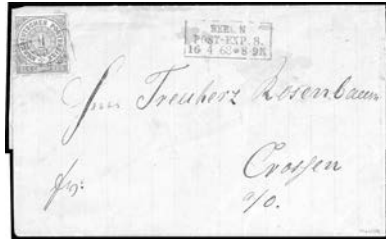 BERLIN
POST-EXP. 8.
16 4 68 * 8-9N
Treuherz Rosenbaum
Crossen
a/O.
fr: